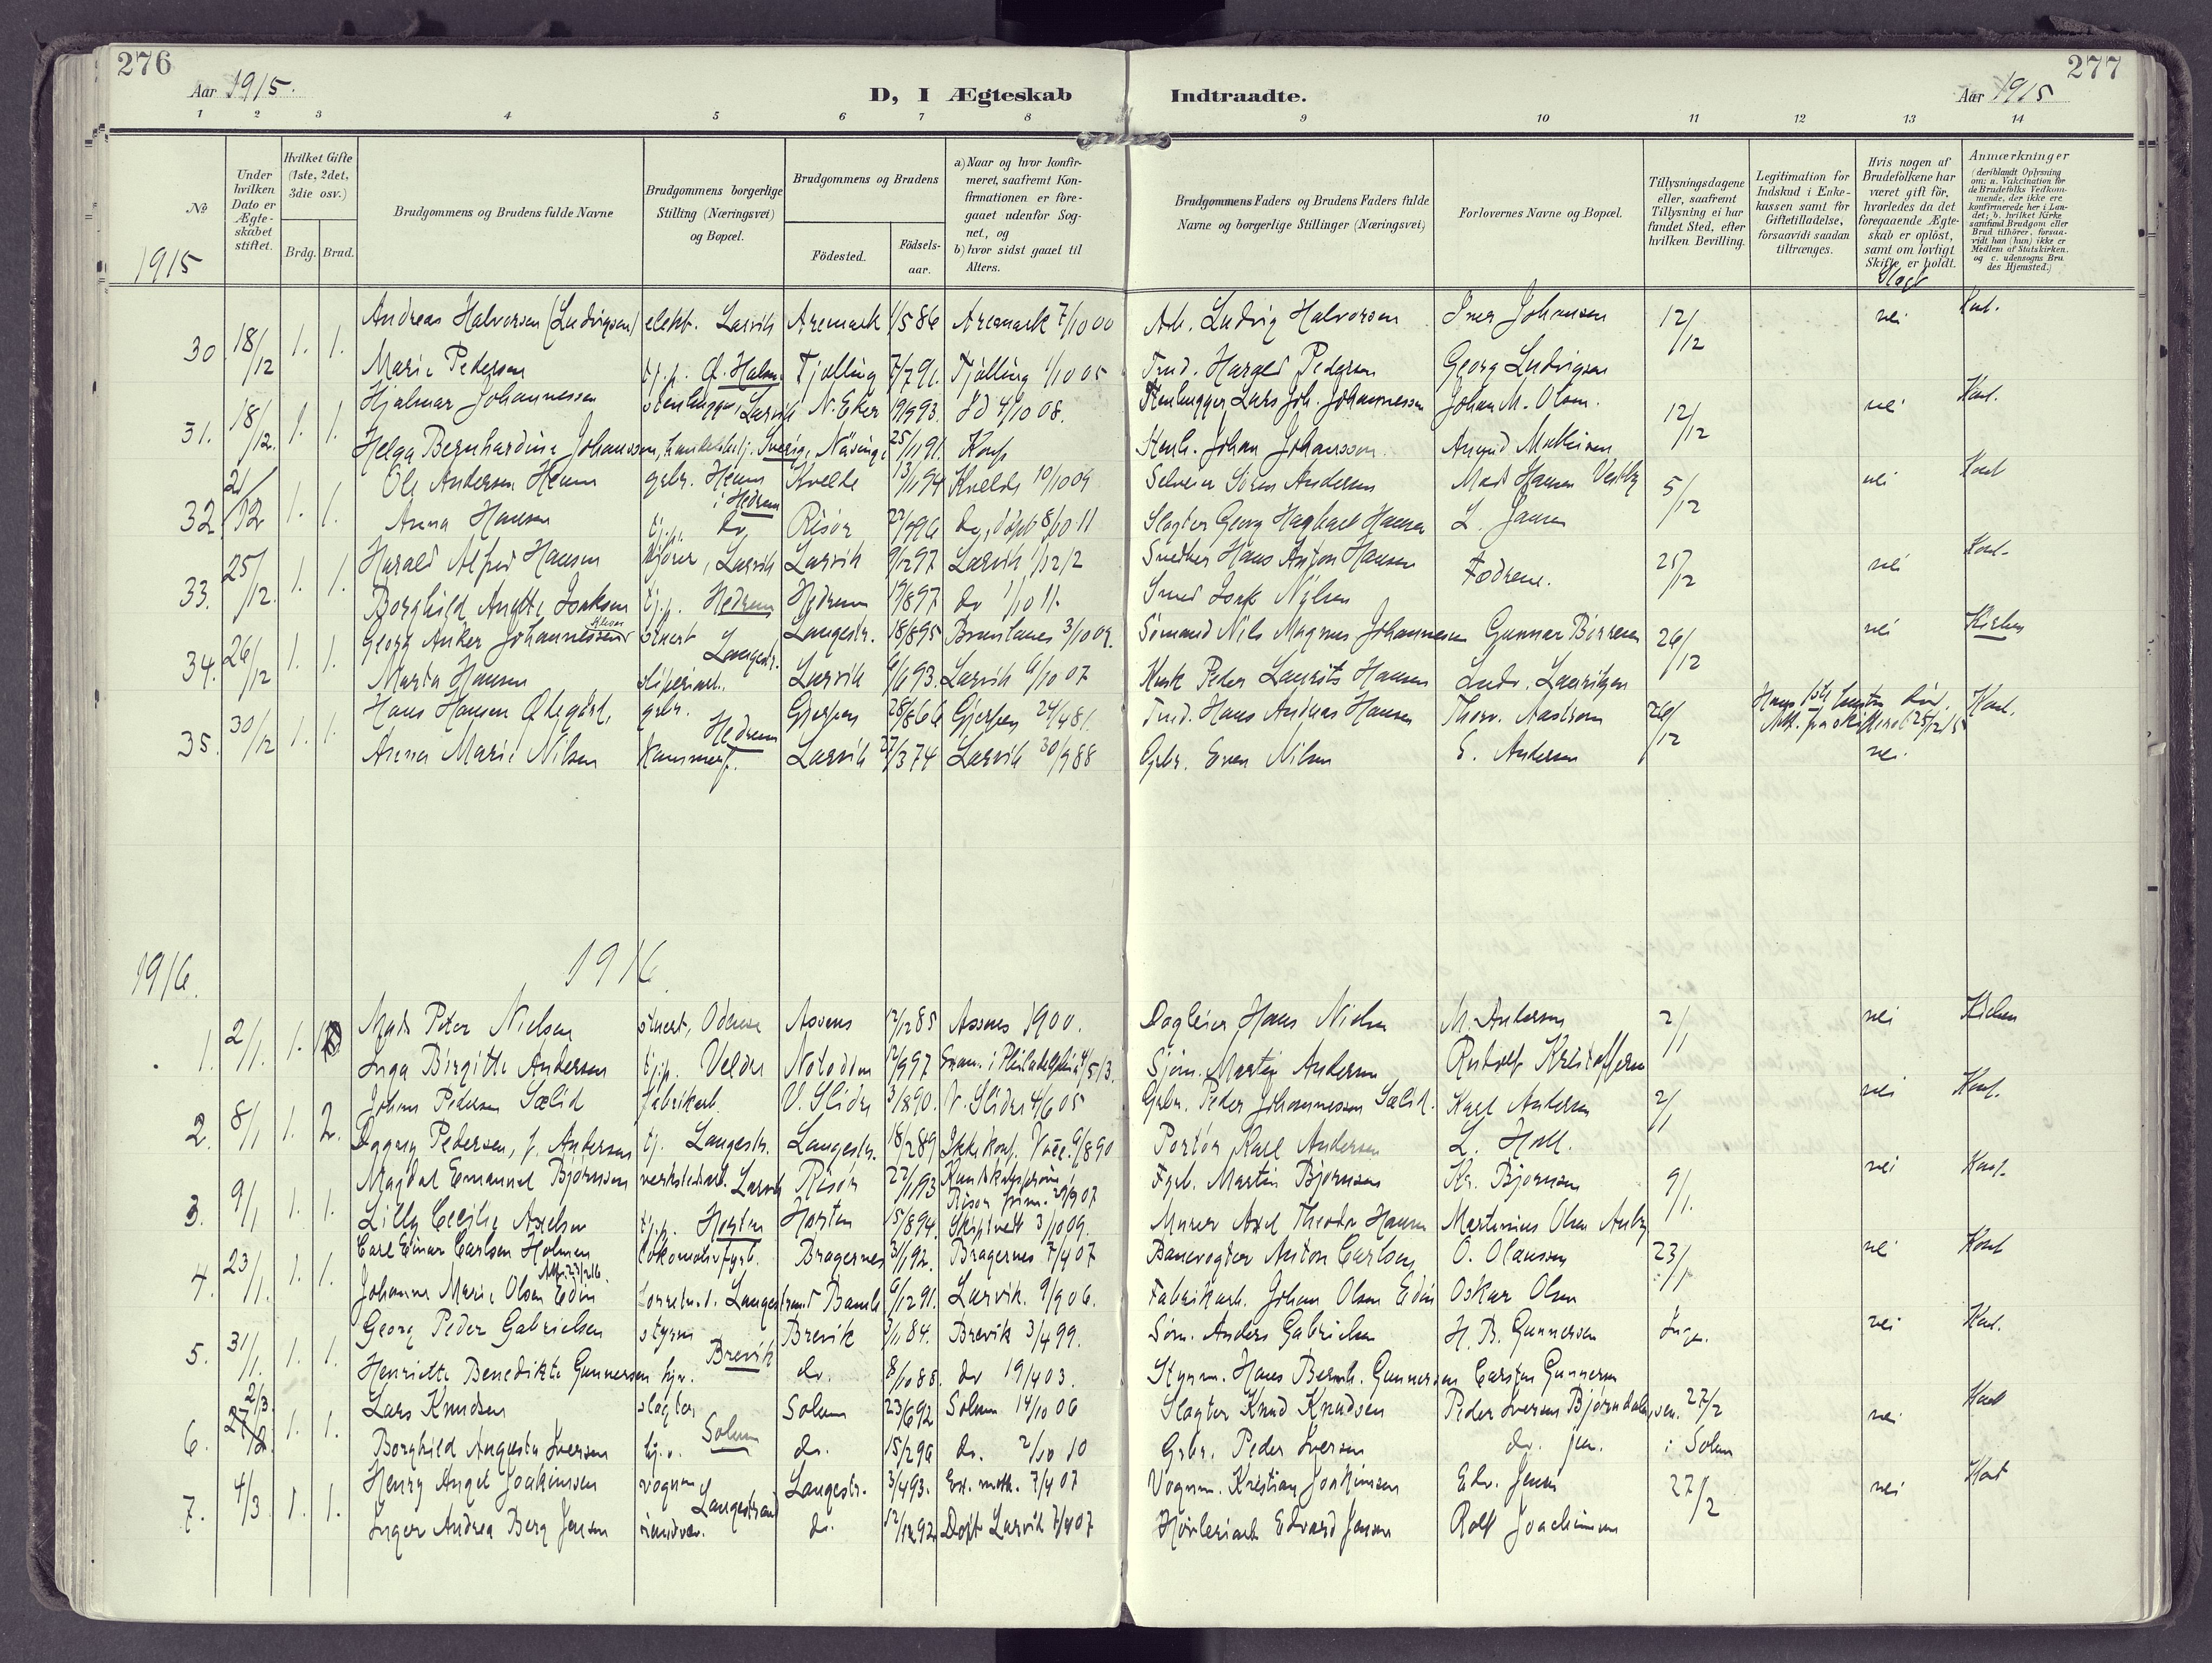 276
Aar 1915.
D, I Ægteskab Indtraadte.
Aar 1915
277
1 2 3 4 5 6 7 8 9 10 11 12 13 14
No
Under hvilken Dato er Ægteskabet stiftet.
Hvilket Gifte (1ste, 2det, 3die osv.)
Brdg. Brud.
Brudgommens og Brudens fulde Navne
Brudgommens borgerlige Stilling (Næringsvei) og Bopæl.
Brudgommens og Brudens
Födested. Födsels-aar.
a) Naar og hvor konfirmeret, saafremt Konfirmationen er foregaaet udenfor Sognet, og
b) hvor sidst gaaet til Alters.
Brudgommens Faders og Brudens Faders fulde Navne og borgerlige Stillinger (Næringsvei)
Forlovernes Navne og Bopæl.
Tillysningsdagene eller, saafremt Tillysning ei har fundet Sted, efter hvilken Bevilling.
Legitimation for Indskud i Enkekassen samt for Giftetilladelse, forsaavidt saadan tiltrænges.
Hvis nogen af Brudefolkene har været gift för, hvorledes da det foregaaende Ægteskab er oplöst, samt om lovligt Skifte er holdt.
Anmærkninger (deriblandt Oplysning om: a. Vakcination for de Brudefolks Vedkommende, der ikke ere konfirmerede her i Landet; b. hvilket Kirkesamfund Brudgom eller Brud tilhörer, forsaavidt han (hun) ikke er Medlem af Statskirken. og c. udensogns Brudes Hjemsted.)
1915
Slægt
30 18/12 1. 1. Andreas Halvorsen (Ludvigsen) elekt. Larvik Aremark 1/5 86 Aremark 7/10 00 Arb. Ludvig Halvorsen Iver Johansen 12/12 nei Kont.
Marie Pedersen tj.p. Tjølling 7/7 91. Tjølling 1/10 05 Harald Pedersen Georg Ludvigsen
31. 18/12. 1. 1. Hjalmar Johannessen stenhugger, Larvik N. Eker 19/9 93. Id 4/10 08. Stenhugger Lars Joh. Johannessen Johan M. Olsen. 12/12 nei Kont.
Helga Bernhardine Johansson, Sverige, Näsinge 25/11 91. Konf. Stenh. Johan Johansson. Mathisen
32. 21/12 1. 1. Ole Andersen Heum gbr. Heum i Hedrum Kvelde 13/11 94 Kvelde 10/10 09 Selveier Sören Andersen 5/12 nei Kont
Anna Hansen tj.p. do Risör 8/10 11 Slagter Georg Hansen L. Jansen
33. 25/12. 1. 1. Harald Alfred Hansen kjører, Larvik Larvik 9/12 97 Larvik 1/12/2 Snedker Hans Anton Hansen Fædrene. 25/12 nei Kont.
Borghild Anette Isaksen tj.p. Hedrum Hedrum 19/8 97 do 1/10 11. Smed Isak Nilsen
34. 26/12 1. 1. Georg Anker Johannessen stuert Langestr. Langestr. 18/8 95 Brunlanes 3/10 09. Sömand Nils Magnus Johannesen Gunnar 26/12 nei Kirken
Marta Hansen Larvik 6/6 93. Larvik 6/10 07 Kusk Peder Laurits Hansen Ludv. Lauritzen
35. 30/12 1. 1. Hans Hansen Ødegård, gbr. Hedrum Gjerpen 28/8 66 Gjerpen 24/4 81. Hans Andreas Hansen Thorv. Aastrom 26/12 Hans 1ste hustru död. Att. fra skifteret 25/12/15 Kont.
Anna Marie Nilsen Larvik 27/3 74 Larvik 30/9 88 Gbr. Even Nilsen E. Andersen nei.
1916. 1916
1. 2/1. 1. Mads Peter Nielsen stuert, Odense Assens 12/2 85 Assens 1900. Dagleier Hans Nielsen M. Andersen 2/1 nei Kirken
Inga Birgitte Andersen tj.p. Velden Notodden 12/9 97 Exam. i Philadelphia 4/5 13. Sjöm. Martin Andersen Rudolf Kristoffersen
2. 8/1 1. 2. Johan Pedersen Sælid fabrikarb. V. Slidre 3/8 90. V. Slidre 4/6 05 Gbr. Peder Johannessen Sælid. Karl Andersen 2/1 nei Kont.
Dagny Pedersen, f. Andersen tj. Langestr. Langestr. 18/2 89 Ikke konf. Vacc. 9/8 90 Portör Karl Andersen L. Holt.
3. 9/1 1. 1. Magdal Emanuel Björnsen verkstedsarb. Larvik Risör 22/11 93 Kundskabspröve Risör 29/9 07 Fyrb. Martin Björnsen Kr. Björnsen 9/1. nei Kont.
Lilly Cecilie Axelsen tj.p. Horten Horten 15/8 94. Skiptvedt 3/10 09. Murer Axel Theodor Hansen Martinius Olsen Auby
4. 23/1. 1. 1. Carl Einar Carlsen Holmen lokomotivfyrb. Bragernes 3/1 92. Bragernes 7/4 07 Banevogter Anton Carlsen O. Olaussen 23/1 nei Kont
Johanne Marie Olsen Edin Langestrand Bamle 6/12 91. Larvik. 9/9 06. Fabrikarb. Johan Olsen Edin Oskar Olsen
5. 31/1. 1. 1. Georg Peder Gabrielsen styrm Brevik Brevik 84. Brevik 3/4 99. Söm. Anders Gabrielsen H. B. Gunnersen Inge. nei Kont.
Henriette Benedikte Gunnersen hjv. do. 8/10 88. do 19/4 03. Styrm. Hans Bernh. Gunnersen Carsten Gunnersen
6. 2/3. 27/2 1. 1. Lars Knudsen slagter Solum Solum 23/6 92 Solum 14/10 06 Slagter Knud Knudsen Peder Iversen Björndalen, sen. 27/2 nei Kont
Borghild Augusta Iversen do. 15/2 96 do. 2/10 10 Gbr. Peder Iversen do. jun. i Solum
7. 4/3. 1. 1. Henry Angel Joakimsen vognm Langestrand Langestr. 3/4 93. Ev. meth. 7/4 07 Vognm. Kristian Joakimsen Edv. Jensen 27/2 nei Kont
Inger Andrea Berg Jensen do. 12/12 92 Döpt Larvik 7/4 07 Høvleriarb Edvard Jensen Rolf Joachimsen